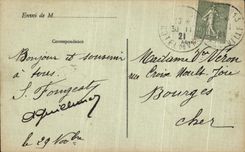 Envoi de M
Correspondance
Bonjour et souvenir
à tous.
S. Fougeaty
Guillemin
le 29 Nobre
Madame Vve Véron
rue Croix Moult-Joie
Bourges
Cher
17
30
21